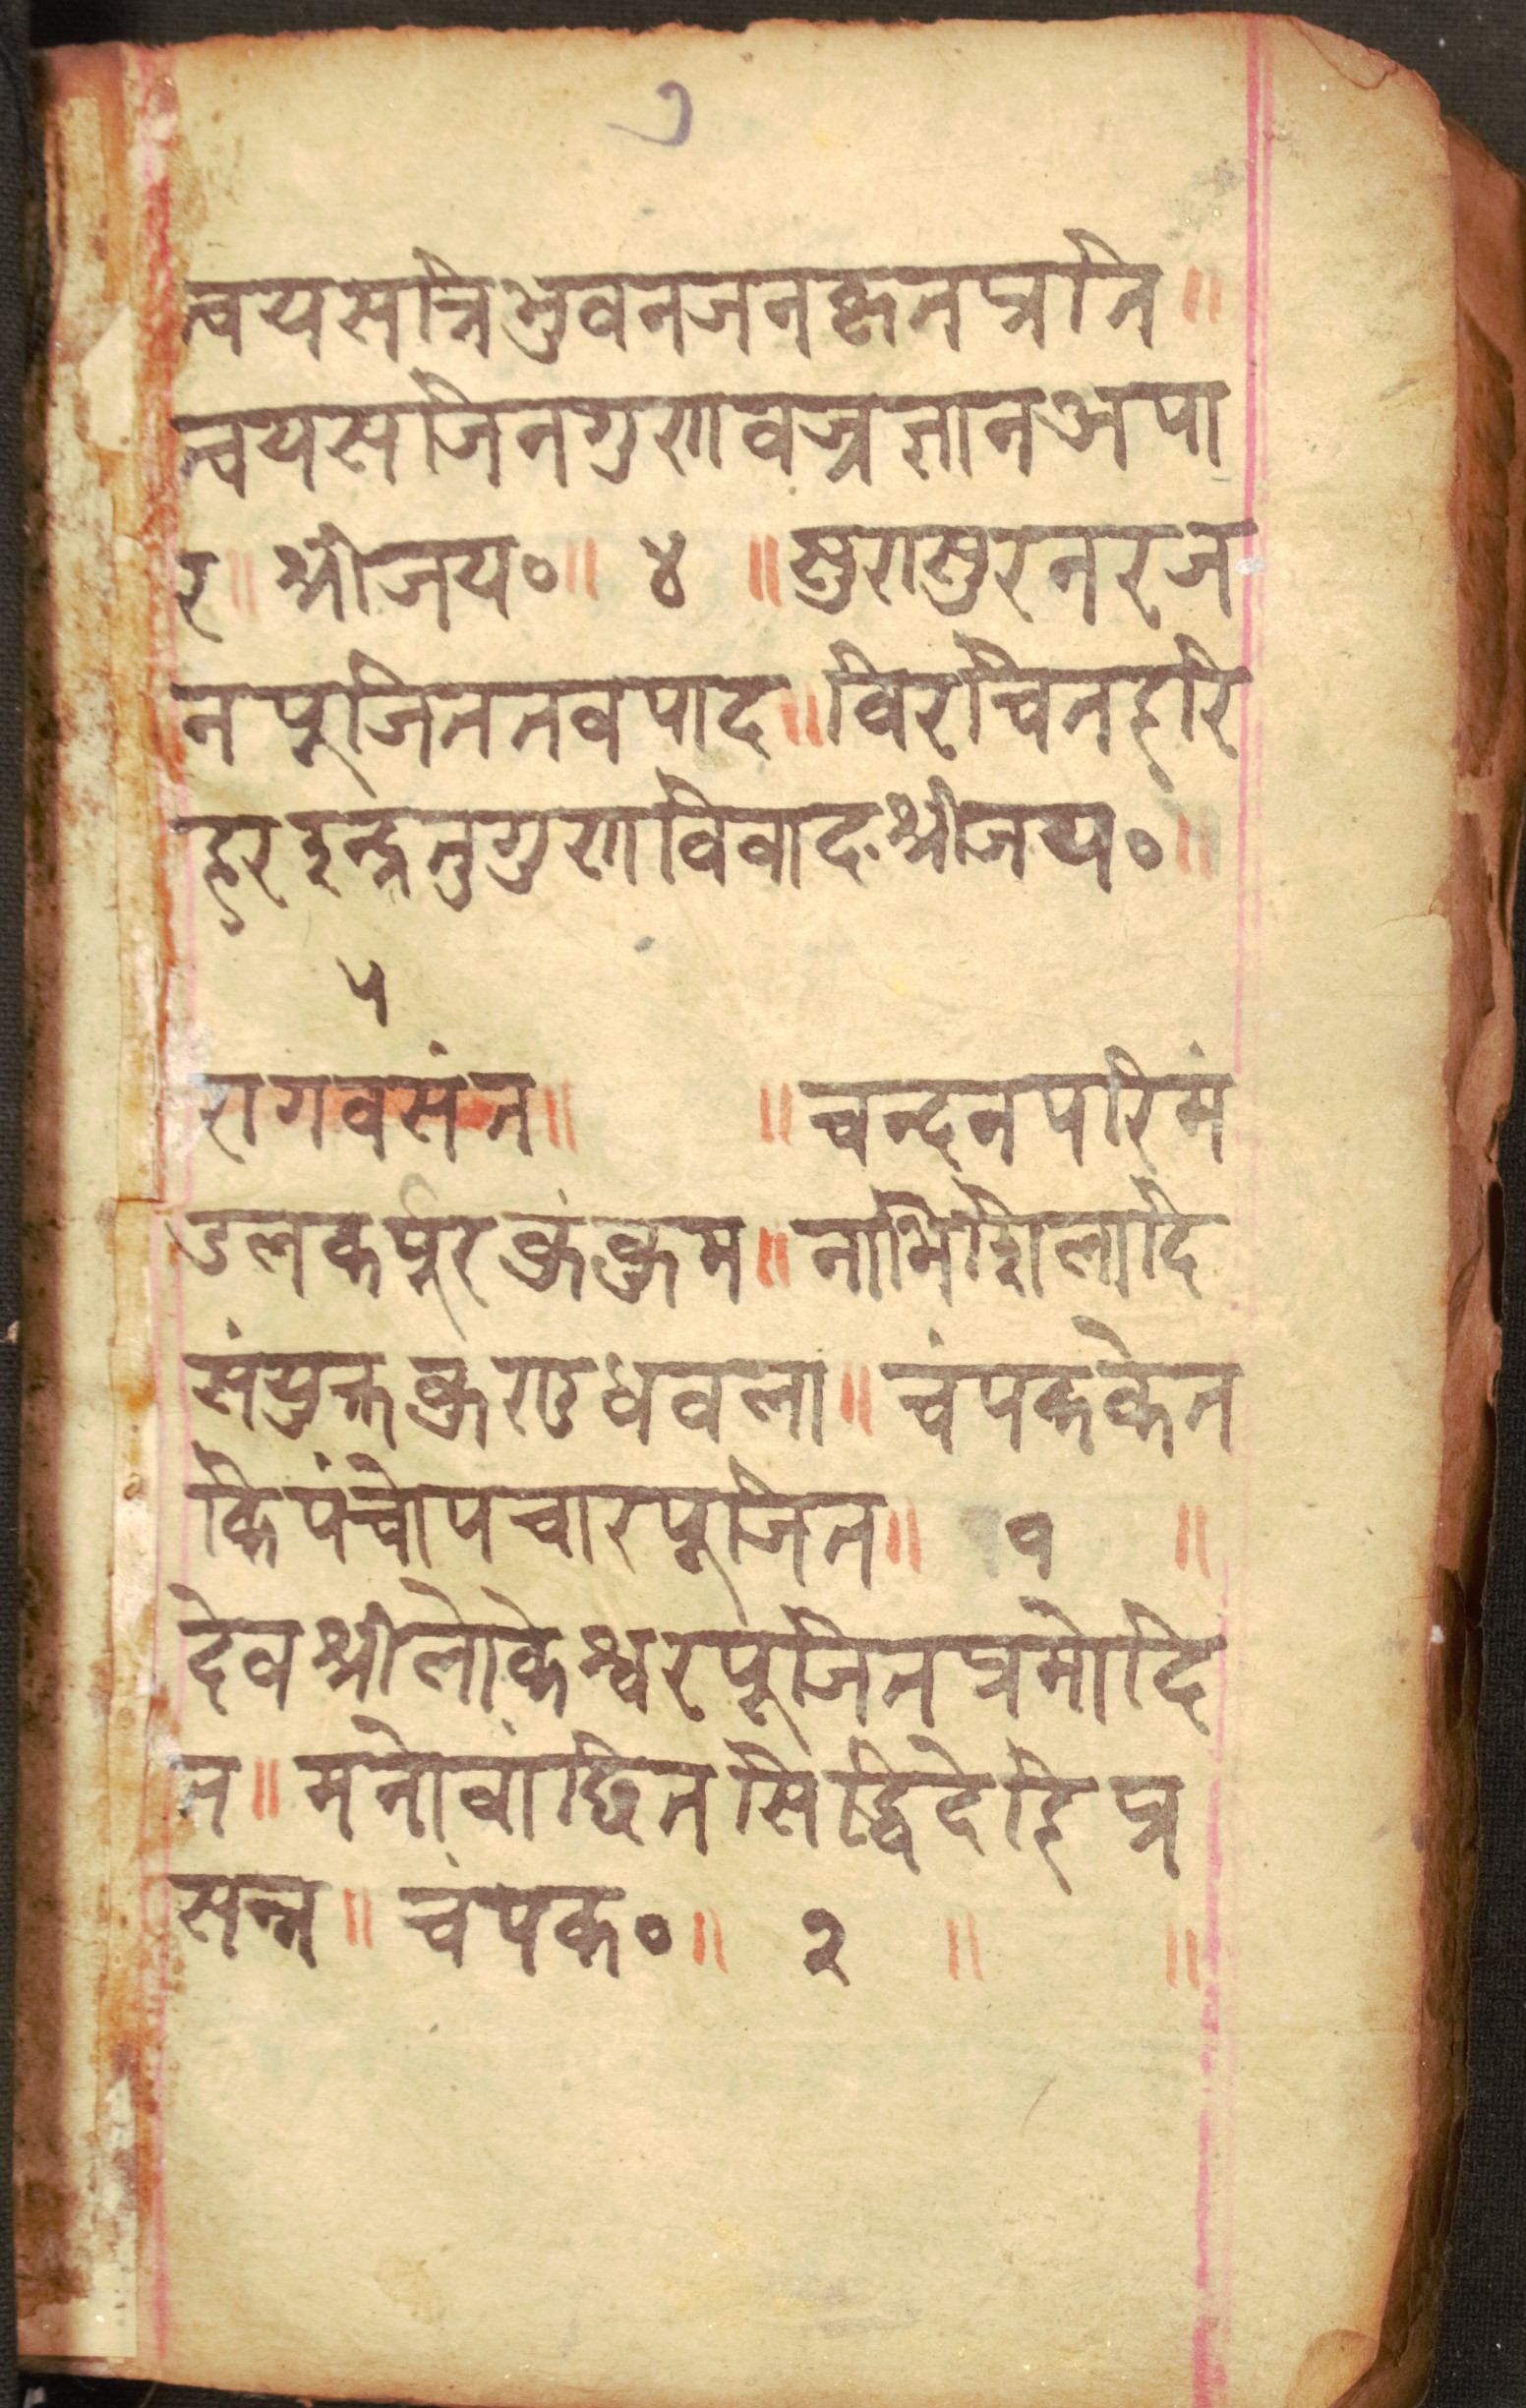 ७
त्वयसत्रिभुवनजनकृतप्रति॥
त्वयसजिनगुणवज्रज्ञानअपा
र॥श्रीजय०॥ ४ ॥सुरासुरनरज
नपूजिततवपाद॥विरंचितहरि
हरइन्द्रतुगुणविवाद.श्रीजय०॥
५
रागवसंत॥ ॥चन्दनपरिमं
डलकर्पूरकुंकुम॥नाभिशिलादि
संयुक्तकुण्डधवला॥चंपककेत
किपंचोपचारपूजित॥ १ ॥
देवश्रीलोकेश्वरपूजितप्रमोदि
त॥मनोवांछितसिद्धिदेहिप्र
सन्न॥चंपक०॥ २ ॥ ॥